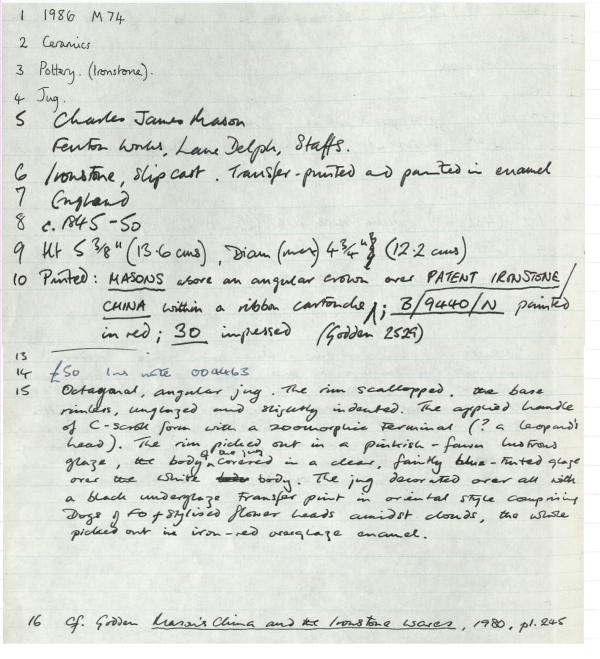 1 1986 M74
2 Ceramics
3 Pottery. (Ironstone).
4 Jug.
5 Charles James Mason
Fenton Works, Lane Delph, Staffs.
6 Ironstone, slip cast. Transfer-printed and painted in enamel
7 England
8 c. 1845-50
9 Ht 5 3/8" (13.6 cms), Diam (max) 4 3/4" (12.2 cms)
10 Printed: MASONS above an angular crown over PATENT IRONSTONE/
CHINA within a ribbon cartouche; B/9440/N painted
in red; 30 impressed (Godden 2529)
13
14 £50 Ins note 004463
15 Octagonal, angular jug. The rim scallopped, the base
rimless, unglazed and slightly indented. The applied handle
of C-scroll form with a zoomorphic terminal (? a leopard's
head). The rim picked out in a pinkish-fawn lustrous
glaze, the body of the jug covered in a clear, faintly blue-tinted glaze
over the white body. The jug decorated over all with
a black underglaze transfer print in oriental style comprising
Dogs of FO + stylised flower heads amidst clouds, the whole
picked out in iron-red overglaze enamel.
16 Cf. Godden Mason's China and the Ironstone Wares, 1980, pl. 245